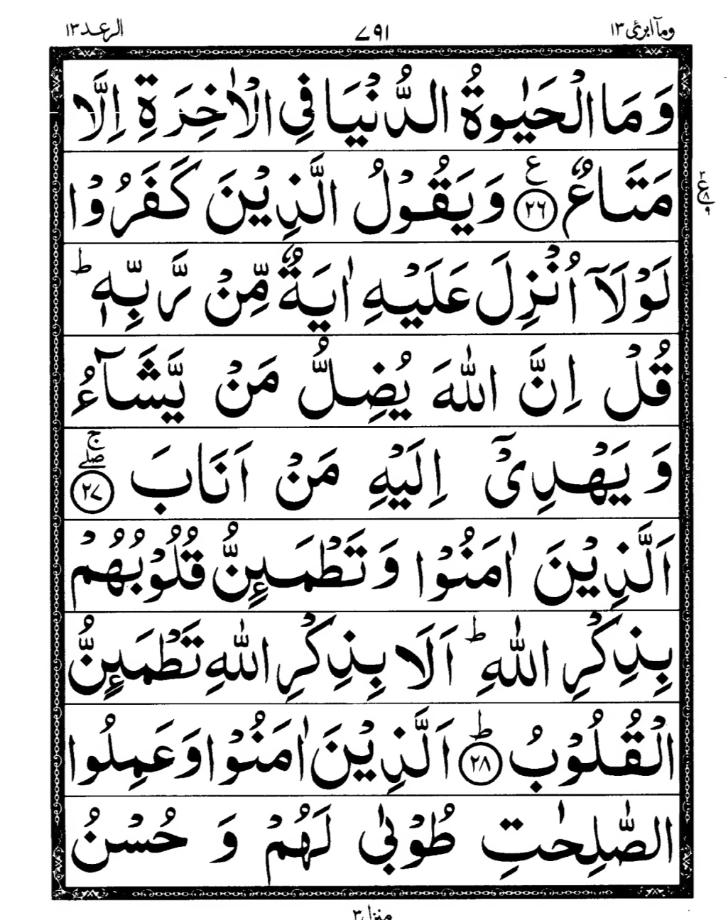 وماۤ ابرئ ١٣ ٧٩١ الرعد ١٣
وَمَا الْحَيٰوةُ الدُّنْيَا فِي الْاٰخِرَةِ اِلَّا
مَتَاعٌ ﴿٢٦﴾ ع وَيَقُوْلُ الَّذِيْنَ كَفَرُوْا
لَوْلَاۤ اُنْزِلَ عَلَيْهِ اٰيَةٌ مِّنْ رَّبِّهٖ ؕ
قُلْ اِنَّ اللّٰهَ يُضِلُّ مَنْ يَّشَآءُ
وَ يَهْدِيْۤ اِلَيْهِ مَنْ اَنَابَ ﴿٢٧﴾ ۖۚ
اَلَّذِيْنَ اٰمَنُوْا وَ تَطْمَىِٕنُّ قُلُوْبُهُمْ
بِذِكْرِ اللّٰهِ ؕ اَلَا بِذِكْرِ اللّٰهِ تَطْمَىِٕنُّ
الْقُلُوْبُ ﴿٢٨﴾ ؕ اَلَّذِيْنَ اٰمَنُوْا وَعَمِلُوا
الصّٰلِحٰتِ طُوْبٰى لَهُمْ وَ حُسْنُ
منزل ٣